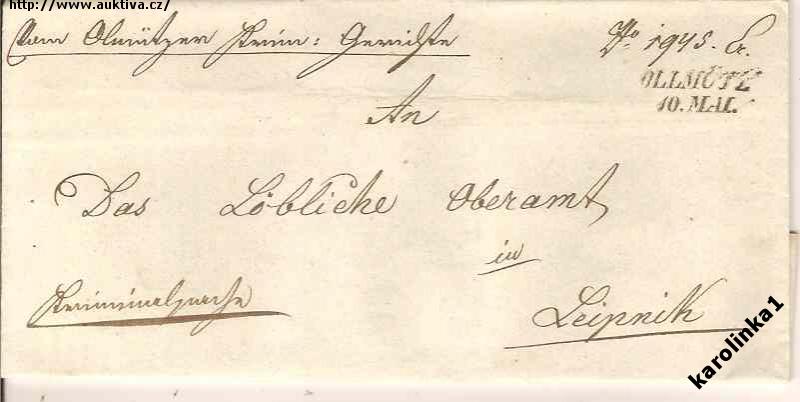 http://www.auktiva.cz/
Vom Olmützer Krim: Gerichte
No 1945. Cr.
OLLMÜTZ
10. MAI.
An
Das Löbliche Oberamt
in
Kriminalsache
Leipnik
karolinka1